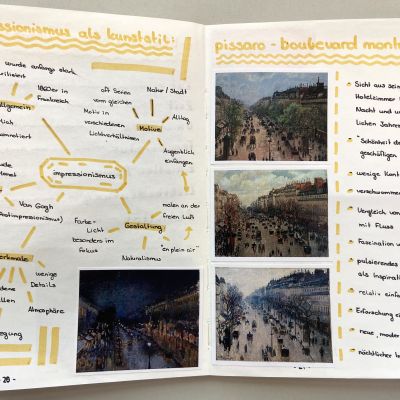 ssionismus als kunststil:
wurde anfangs stark
1860er in
Frankreich
oft Serien
vom gleichen
Motiv in
verschiedenen
Lichtverhältnissen
Natur / Stadt
Motive
Alltag
Augenblick
einfangen
impressionismus
Van Gogh
(Postimpressionismus)
Farbe =
Licht
besonders im
Fokus
Gestaltung
malen an der
freien Luft
"en plein air"
Naturalismus
wenige
Details
Atmosphäre
- 28 -
pissaro - boulevard mont
Sicht aus sein
Hotelzimmer
Nacht und u
lichen Jahre
"Schönheit de
geschäftigen
wenige Kont
verschwomme
Vergleich vo
mit Fluss
Faszination u
pulsierendes
als Inspirati
relativ einf
Erforschung
neue, moder
nächtlicher